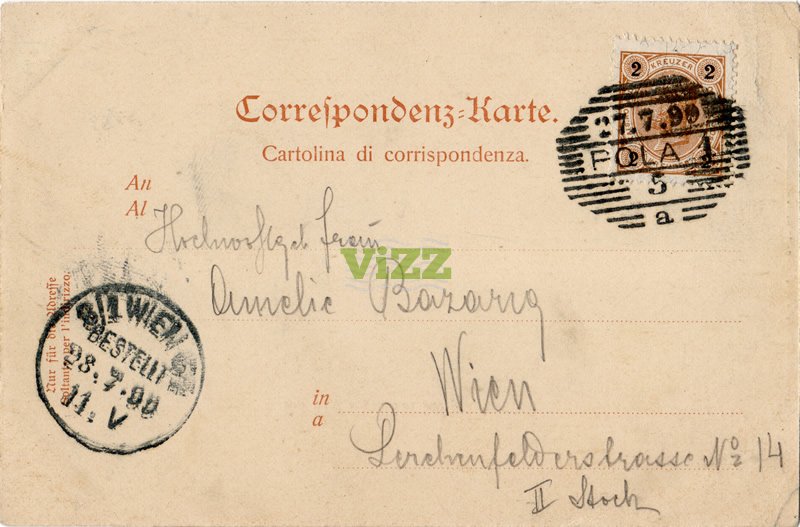 2 KREUZER 2
27.7.99
POLA 1
5
a
Correſpondenz-Karte.
Cartolina di corrispondenza.
An
Al
Hochwohlgeb. Frau
ViZZ
Amelie Bazarig
Nur für die Adresse
Soltanto per l'indirizzo.
8/1 WIEN
BESTELLT
28.7.99
11. V
in
a
Wien
Lerchenfelderstrasse No 14
II Stock